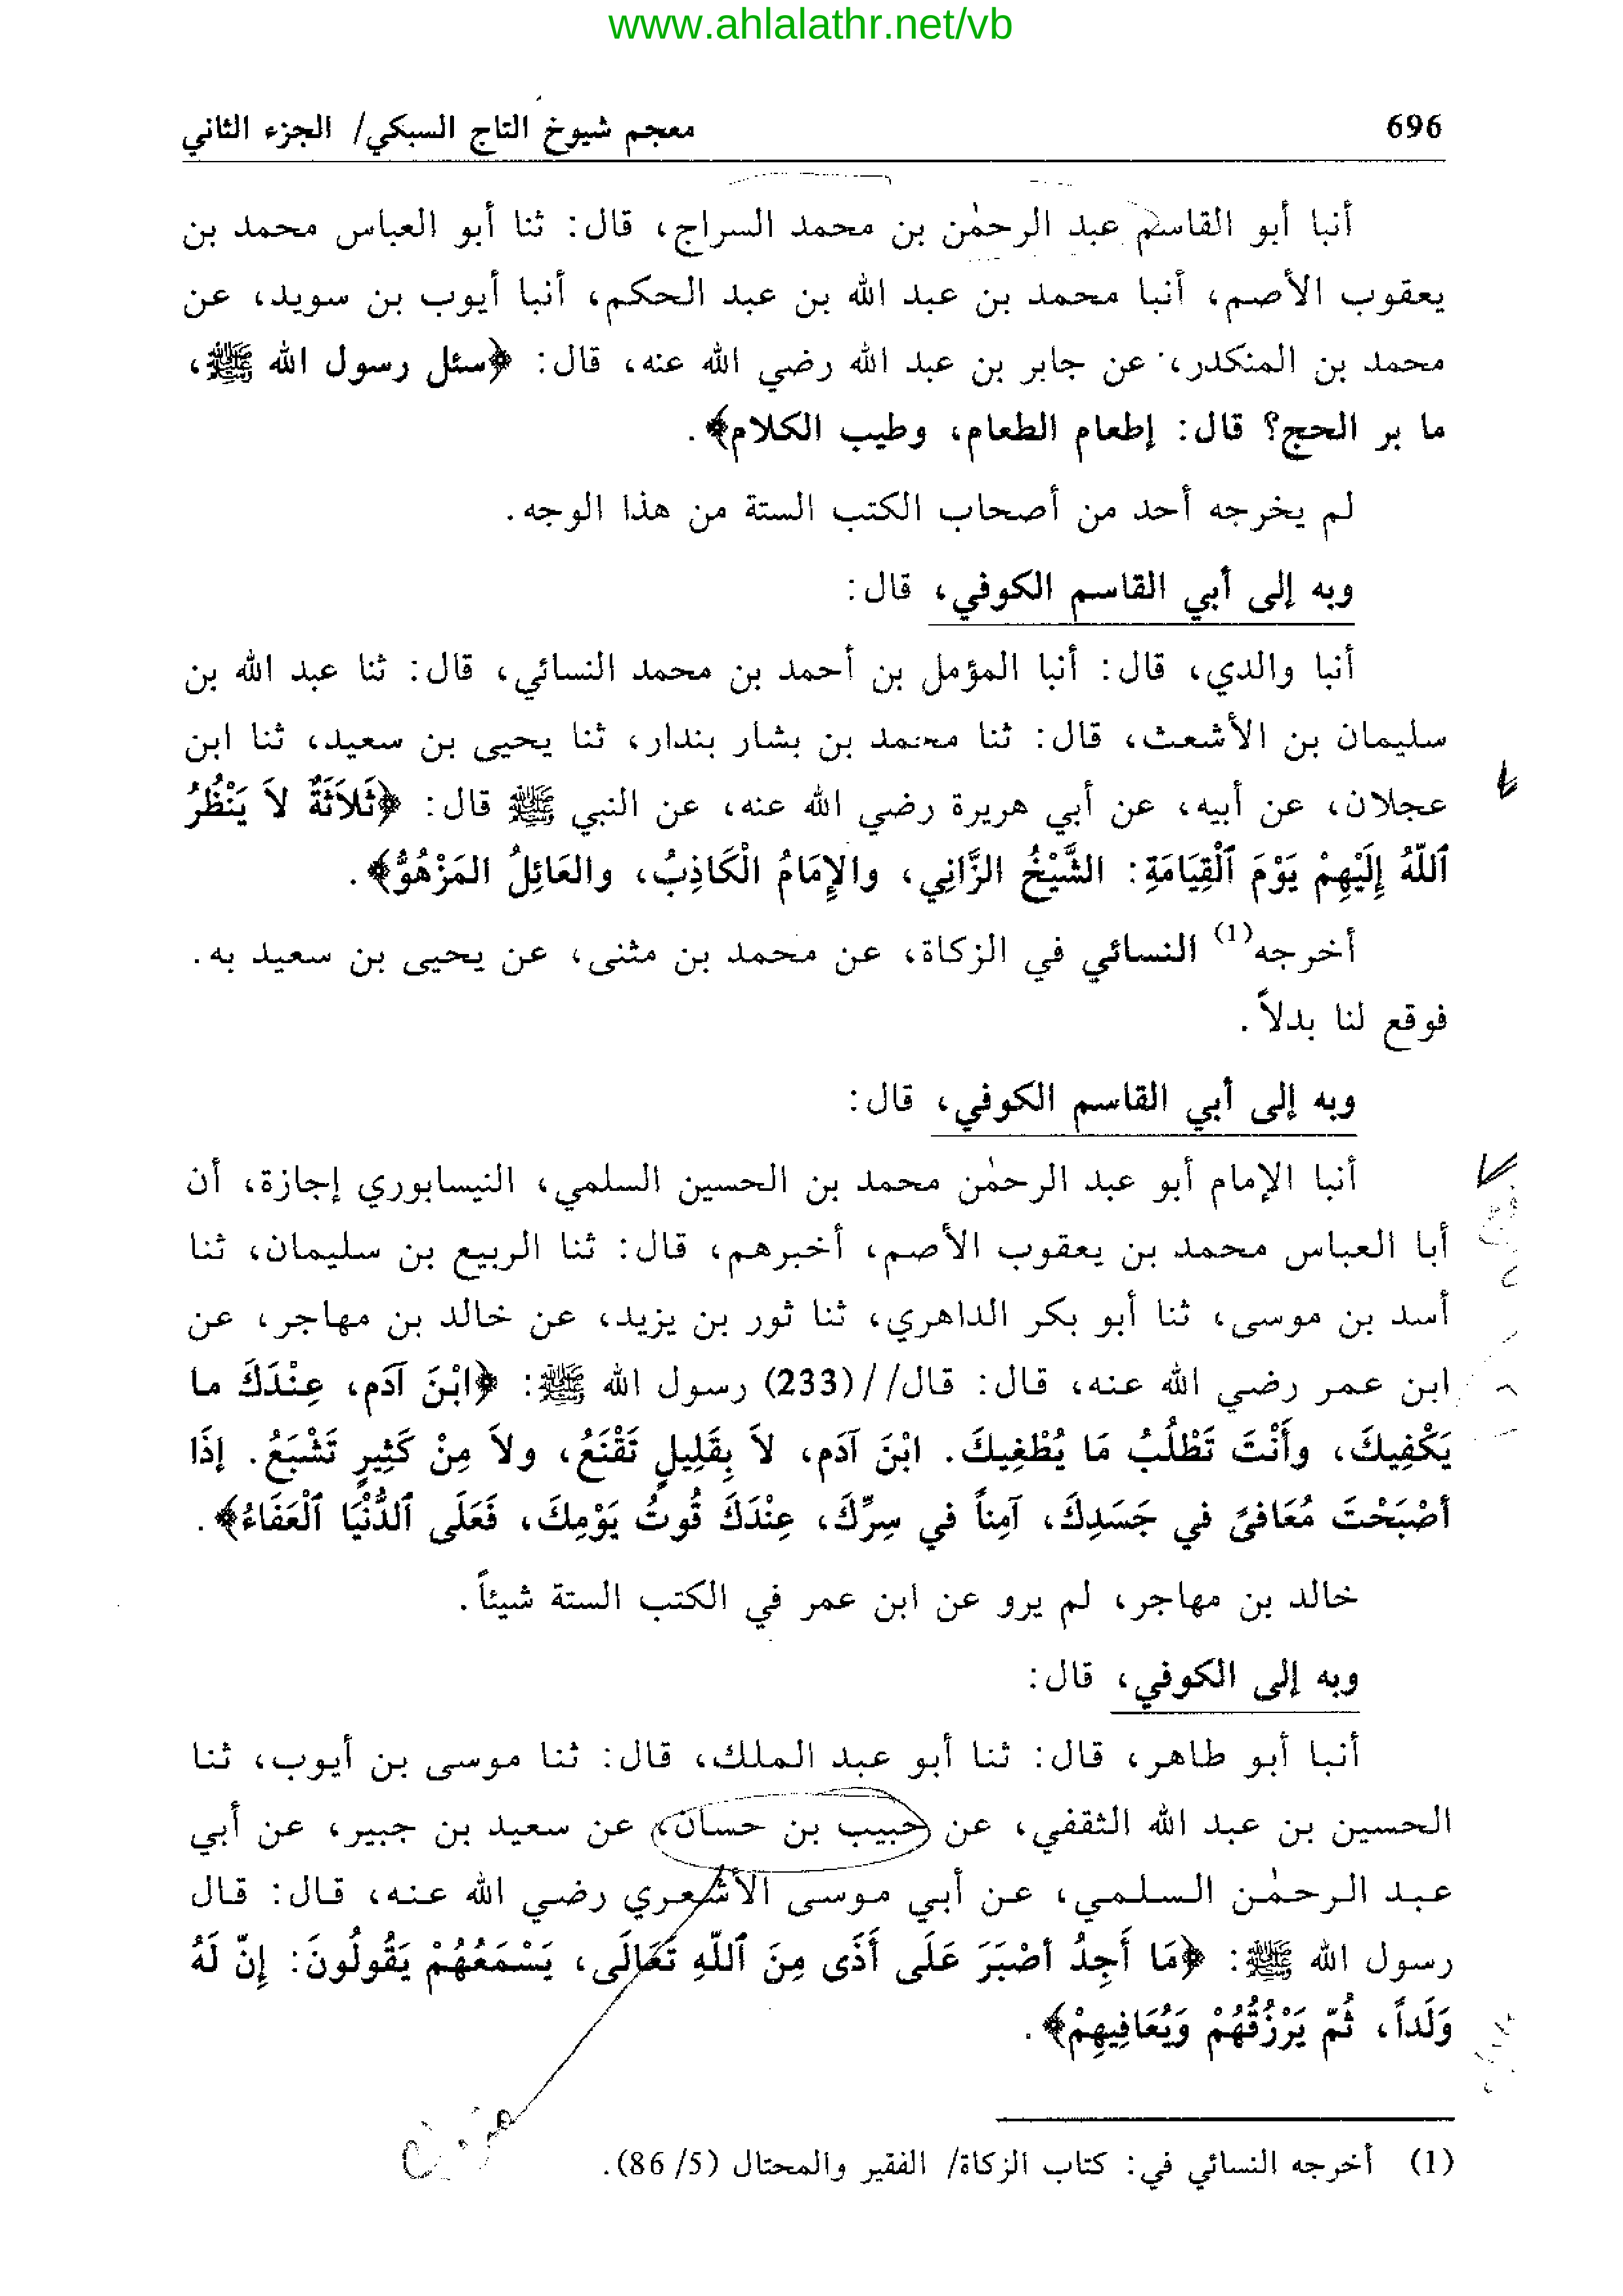 www.ahlalathr.net/vb
696
معجم شيوخ التاج السبكي/ الجزء الثاني
أنبا أبو القاسم عبد الرحمٰن بن محمد السراج، قال: ثنا أبو العباس محمد بن
يعقوب الأصم، أنبا محمد بن عبد الله بن عبد الحكم، أنبا أيوب بن سويد، عن
محمد بن المنكدر، عن جابر بن عبد الله رضي الله عنه، قال: ﴿سئل رسول الله ﷺ،
ما بر الحج؟ قال: إطعام الطعام، وطيب الكلام﴾.
لم يخرجه أحد من أصحاب الكتب الستة من هذا الوجه.
وبه إلى أبي القاسم الكوفي، قال:
أنبا والدي، قال: أنبا المؤمل بن أحمد بن محمد النسائي، قال: ثنا عبد الله بن
سليمان بن الأشعث، قال: ثنا محمد بن بشار بندار، ثنا يحيى بن سعيد، ثنا ابن
عجلان، عن أبيه، عن أبي هريرة رضي الله عنه، عن النبي ﷺ قال: ﴿ثَلاَثَةٌ لاَ يَنْظُرُ
ٱللَّهُ إِلَيْهِمْ يَوْمَ ٱلْقِيَامَةِ: الشَّيْخُ الزَّانِي، والإِمَامُ الْكَاذِبُ، والعَائِلُ المَزْهُوُّ﴾.
أخرجه(1) النسائي في الزكاة، عن محمد بن مثنى، عن يحيى بن سعيد به.
فوقع لنا بدلاً.
وبه إلى أبي القاسم الكوفي، قال:
أنبا الإمام أبو عبد الرحمٰن محمد بن الحسين السلمي، النيسابوري إجازة، أن
أبا العباس محمد بن يعقوب الأصم، أخبرهم، قال: ثنا الربيع بن سليمان، ثنا
أسد بن موسى، ثنا أبو بكر الداهري، ثنا ثور بن يزيد، عن خالد بن مهاجر، عن
ابن عمر رضي الله عنه، قال: قال//(233) رسول الله ﷺ: ﴿ابْنَ آدَم، عِنْدَكَ ما
يَكْفِيكَ، وأَنْتَ تَطْلُبُ مَا يُطْغِيكَ. ابْنَ آدَم، لاَ بِقَلِيلٍ تَقْنَعُ، ولاَ مِنْ كَثِيرٍ تَشْبَعُ. إذَا
أصْبَحْتَ مُعَافىً في جَسَدِكَ، آمِناً في سِرِّكَ، عِنْدَكَ قُوتُ يَوْمِكَ، فَعَلَى ٱلدُّنْيَا ٱلْعَفَاءُ﴾.
خالد بن مهاجر، لم يرو عن ابن عمر في الكتب الستة شيئاً.
وبه إلى الكوفي، قال:
أنبا أبو طاهر، قال: ثنا أبو عبد الملك، قال: ثنا موسى بن أيوب، ثنا
الحسين بن عبد الله الثقفي، عن حبيب بن حسان، عن سعيد بن جبير، عن أبي
عبد الرحمٰن السلمي، عن أبي موسى الأشعري رضي الله عنه، قال: قال
رسول الله ﷺ: ﴿مَا أَجِدُ أصْبَرَ عَلَى أَذَى مِنَ ٱللَّهِ تَعَالَى، يَسْمَعُهُمْ يَقُولُونَ: إِنّ لَهُ
وَلَداً، ثُمّ يَرْزُقُهُمْ وَيُعَافِيهِمْ﴾.
(1) أخرجه النسائي في: كتاب الزكاة/ الفقير والمحتال (5/ 86).